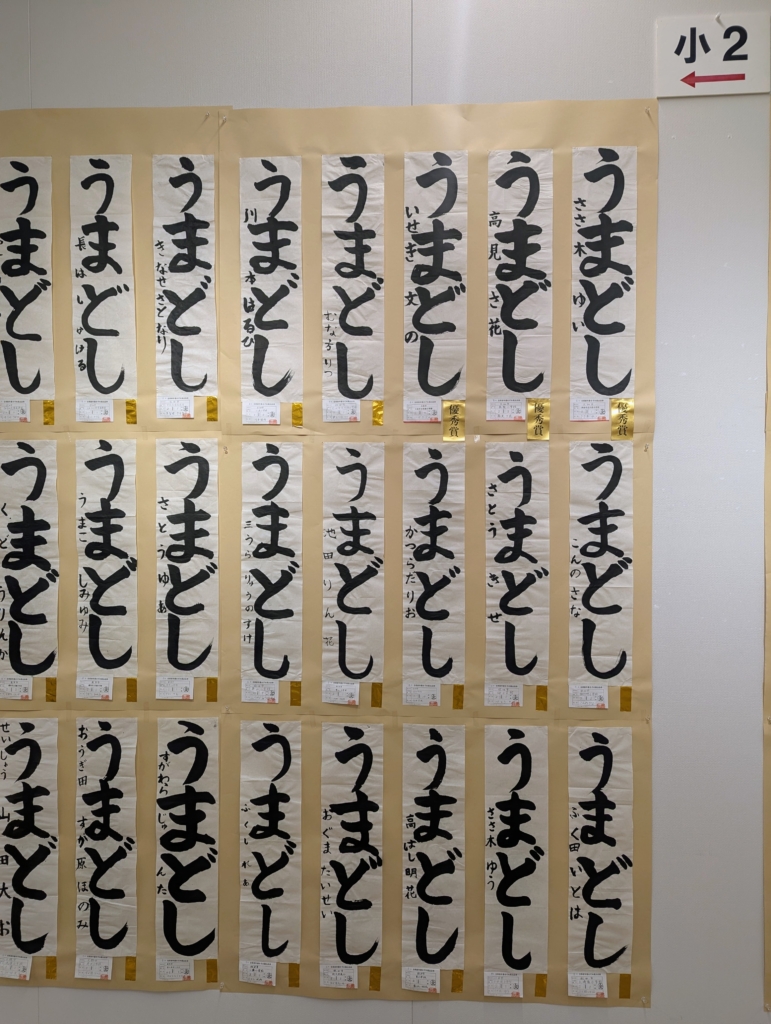 小2
うまどし
ささ木 ゆい
優秀賞
うまどし
高見 さ花
優秀賞
うまどし
いせき 文の
優秀賞
うまどし
うまどし
川本はるひ
うまどし
きなせさとなり
うまどし
うまどし
うまどし
こんのさな
うまどし
さとう きせ
うまどし
かつらだりお
うまどし
池田りん花
うまどし
三うらりょうのすけ
うまどし
さとうゆあ
うまどし
うまこしみゆみ
うまどし
くどうりんか
うまどし
ふく田いとは
うまどし
ささ木ゆう
うまどし
高はし明花
うまどし
おぐまたいせい
うまどし
うまどし
すがわらじゅんた
うまどし
おうぎ田
すが原ほのみ
うまどし
せいしょう
山田大お